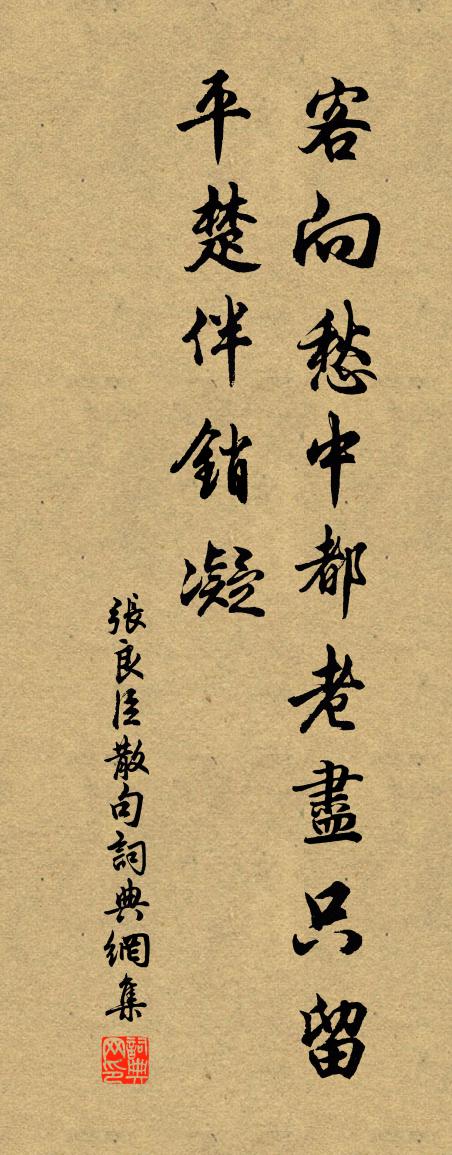 客向愁中都老盡只留
平楚伴銷凝
張良臣散句詞典網集
詞典
网印